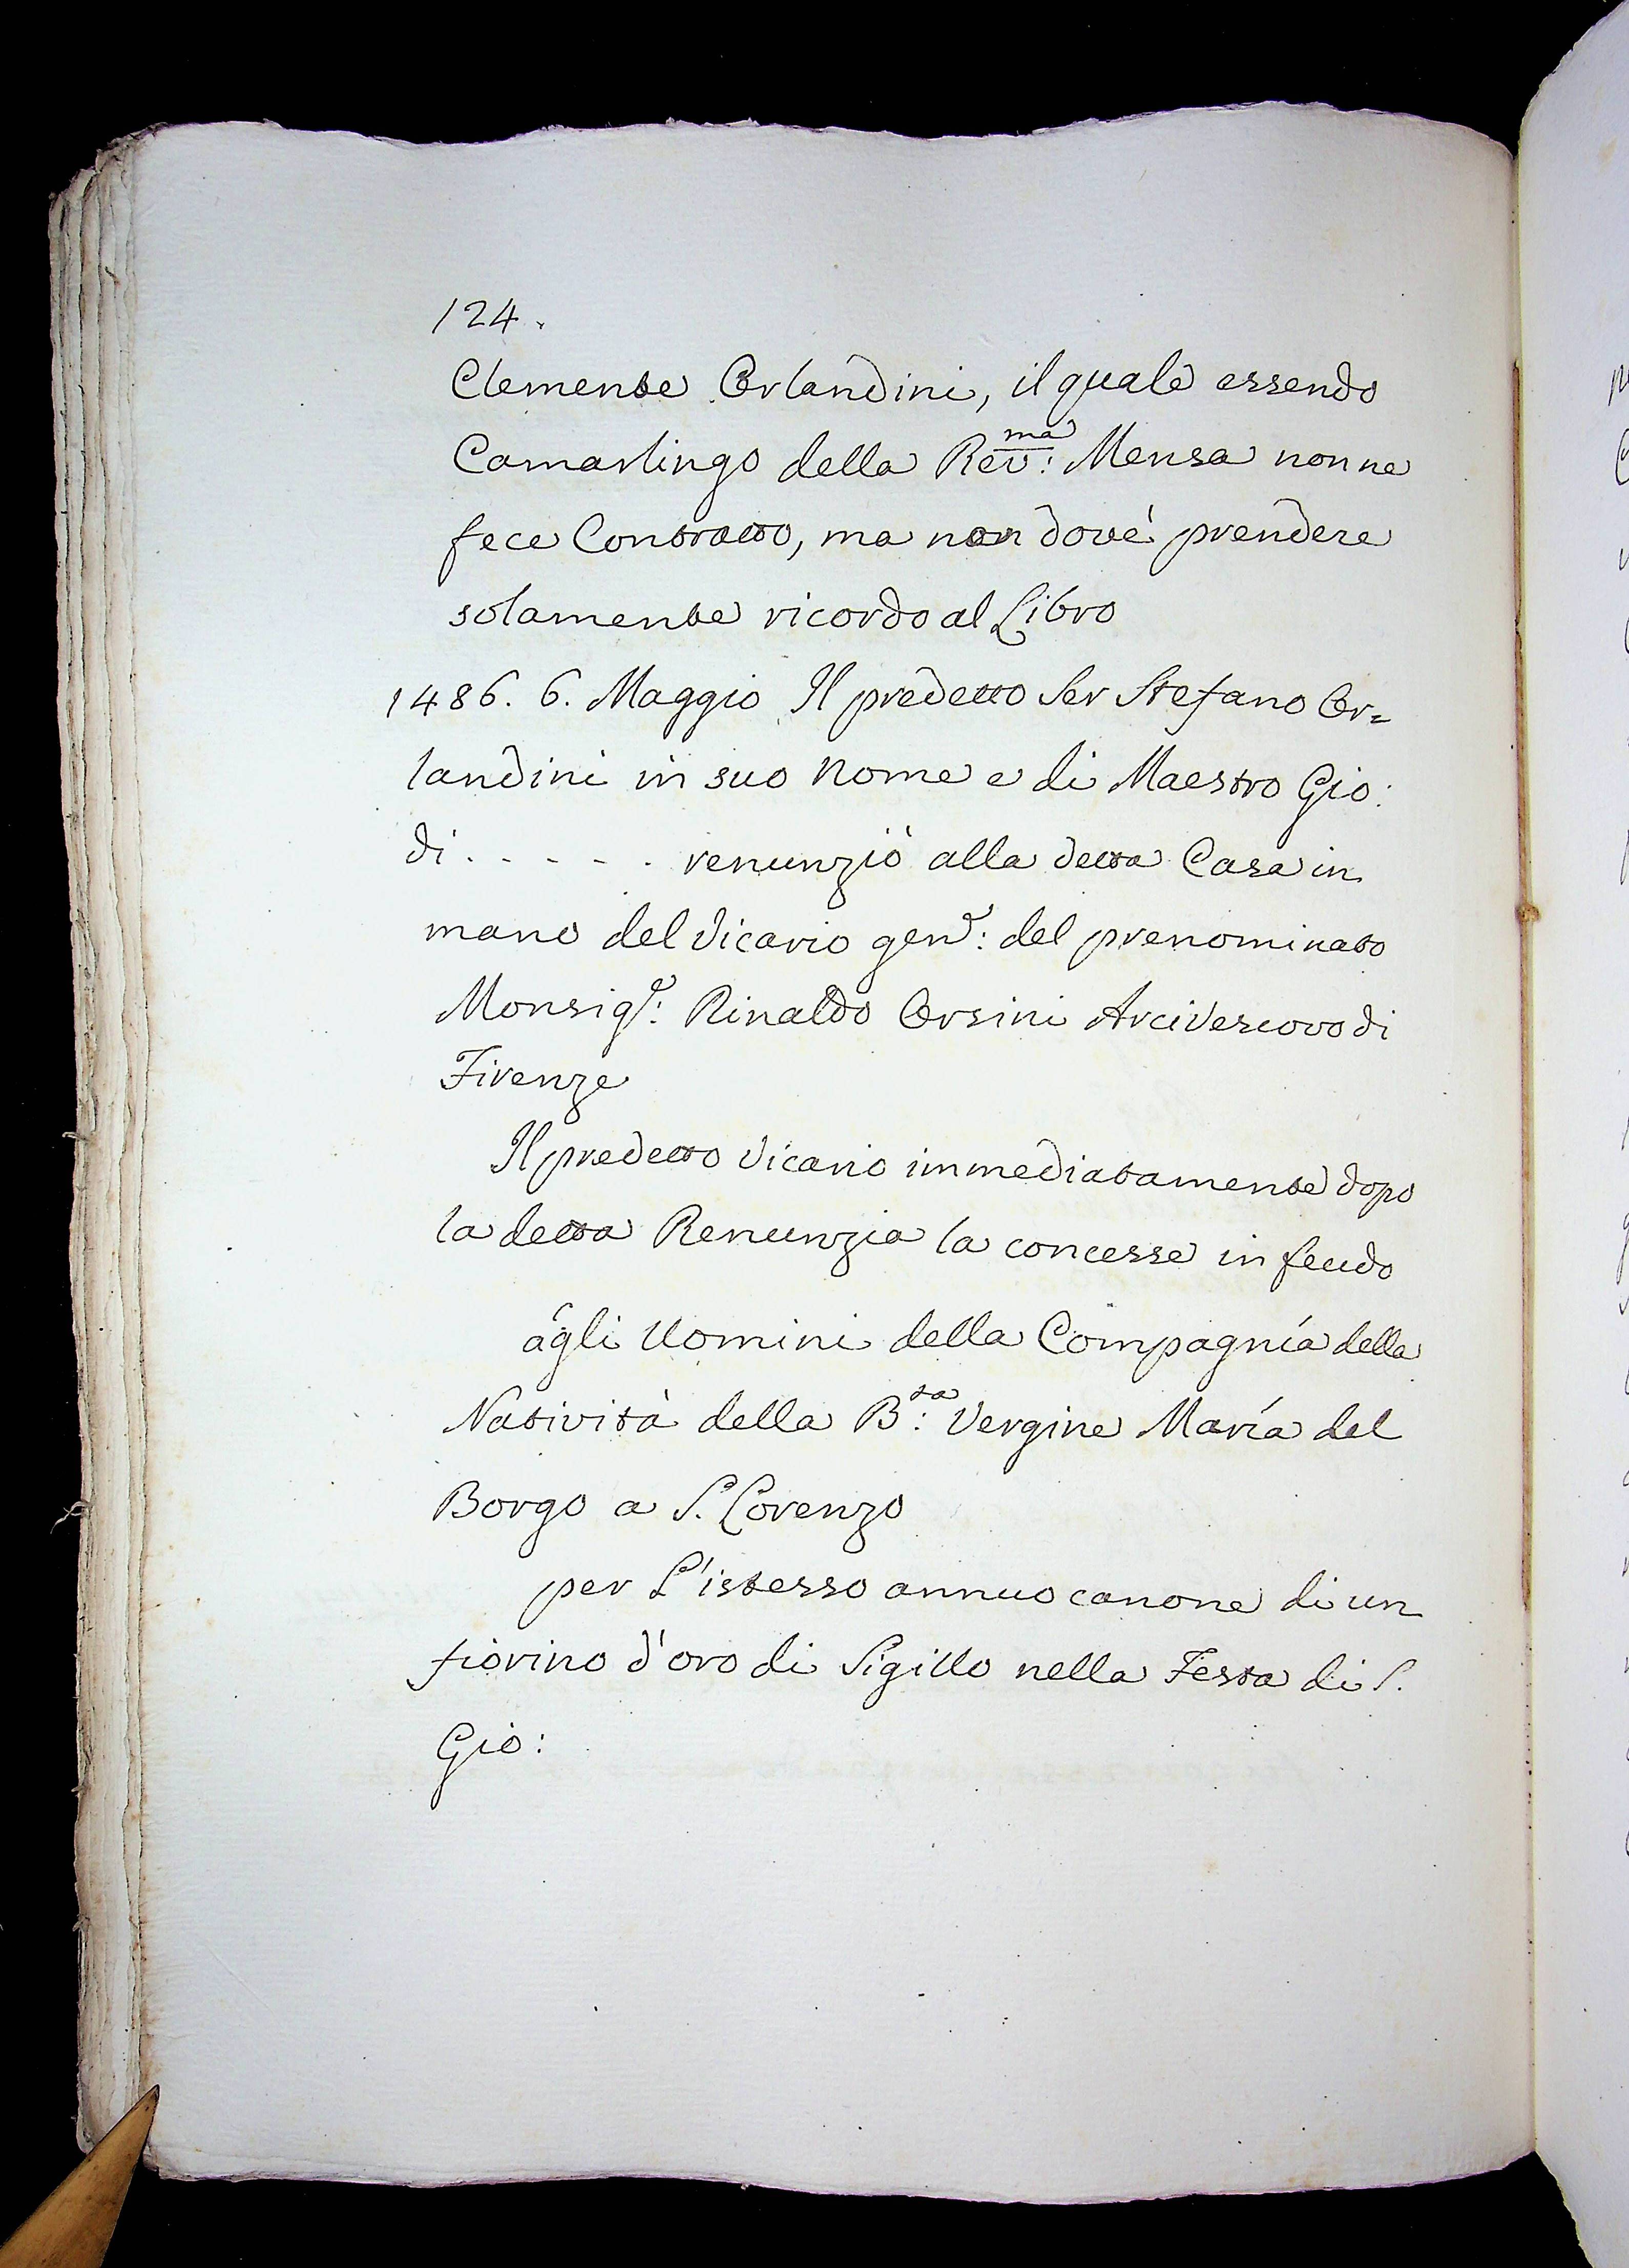 124.
Clemente Orlandini, il quale essendo
Camarlingo della Rev:ma Mensa non ne
fece Contratto, ma non dovè prendere
solamente ricordo al Libro
1486. 6. Maggio Il predetto Ser Stefano Or=
landini in suo nome e di Maestro Gio:
di . - - - - . renunziò alla detta Casa in
mano del Vicario gen:e del prenominato
Monsig:e Rinaldo Orsini Arcivescovo di
Firenze
Il predetto Vicario immediatamente dopo
la detta Renunzia la concesse in feudo
àgli Uomini della Compagnía della
Natività della B:ta Vergine María del
Borgo a S. Lorenzo
per L'istesso annuo canone di un
fiorino d'oro di Sigillo nella Festa di S.
Gio: